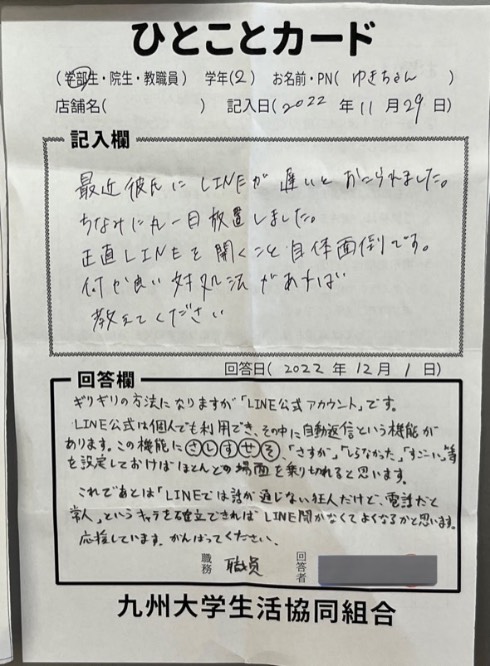 ひとことカード
(学部生・院生・教職員) 学年(2) お名前・PN(ゆきちゃん)
店舗名( ) 記入日(2022年11月29日)
記入欄
最近彼氏にLINEが遅いとおこられました。
ちなみに丸一日放置しました。
正直LINEを開くこと自体面倒です。
何か良い対処法があれば
教えてください
回答日(2022年12月1日)
回答欄
ギリギリの方法になりますが「LINE公式アカウント」です。
LINE公式は個人でも利用でき、その中に自動返信という機能が
あります。この機能にさしすせそ、「さすが」、「しらなかった」、「すごーい」等
を設定しておけばほとんどの場面を乗り切れると思います。
これであとは「LINEでは話が通じない狂人だけど、電話だと
常人」というキャラを確立できればLINE開かなくてよくなるかと思います。
応援しています。がんばってください。
職務 職員 回答者
九州大学生活協同組合